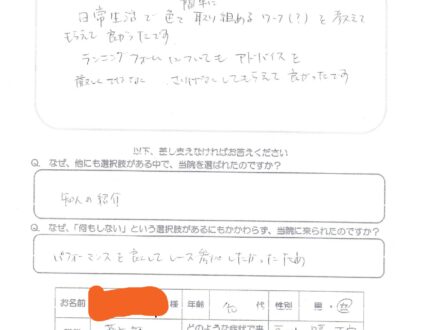 簡単に
日常生活で 取り組めるワーク(?)を考えて
もらえて良かったです
ランニングフォームについてもアドバイスを
してもらえて良かったです
以下、差し支えなければお答えください
Q. なぜ、他にも選択肢がある中で、当院を選ばれたのですか?
知人の紹介
Q. なぜ、「何もしない」という選択肢があるにもかかわらず、当院に来られたのですか?
パフォーマンスを良くしてレース参加したかったため
お名前 様 年齢 代 性別 男・女
どのような症状で来